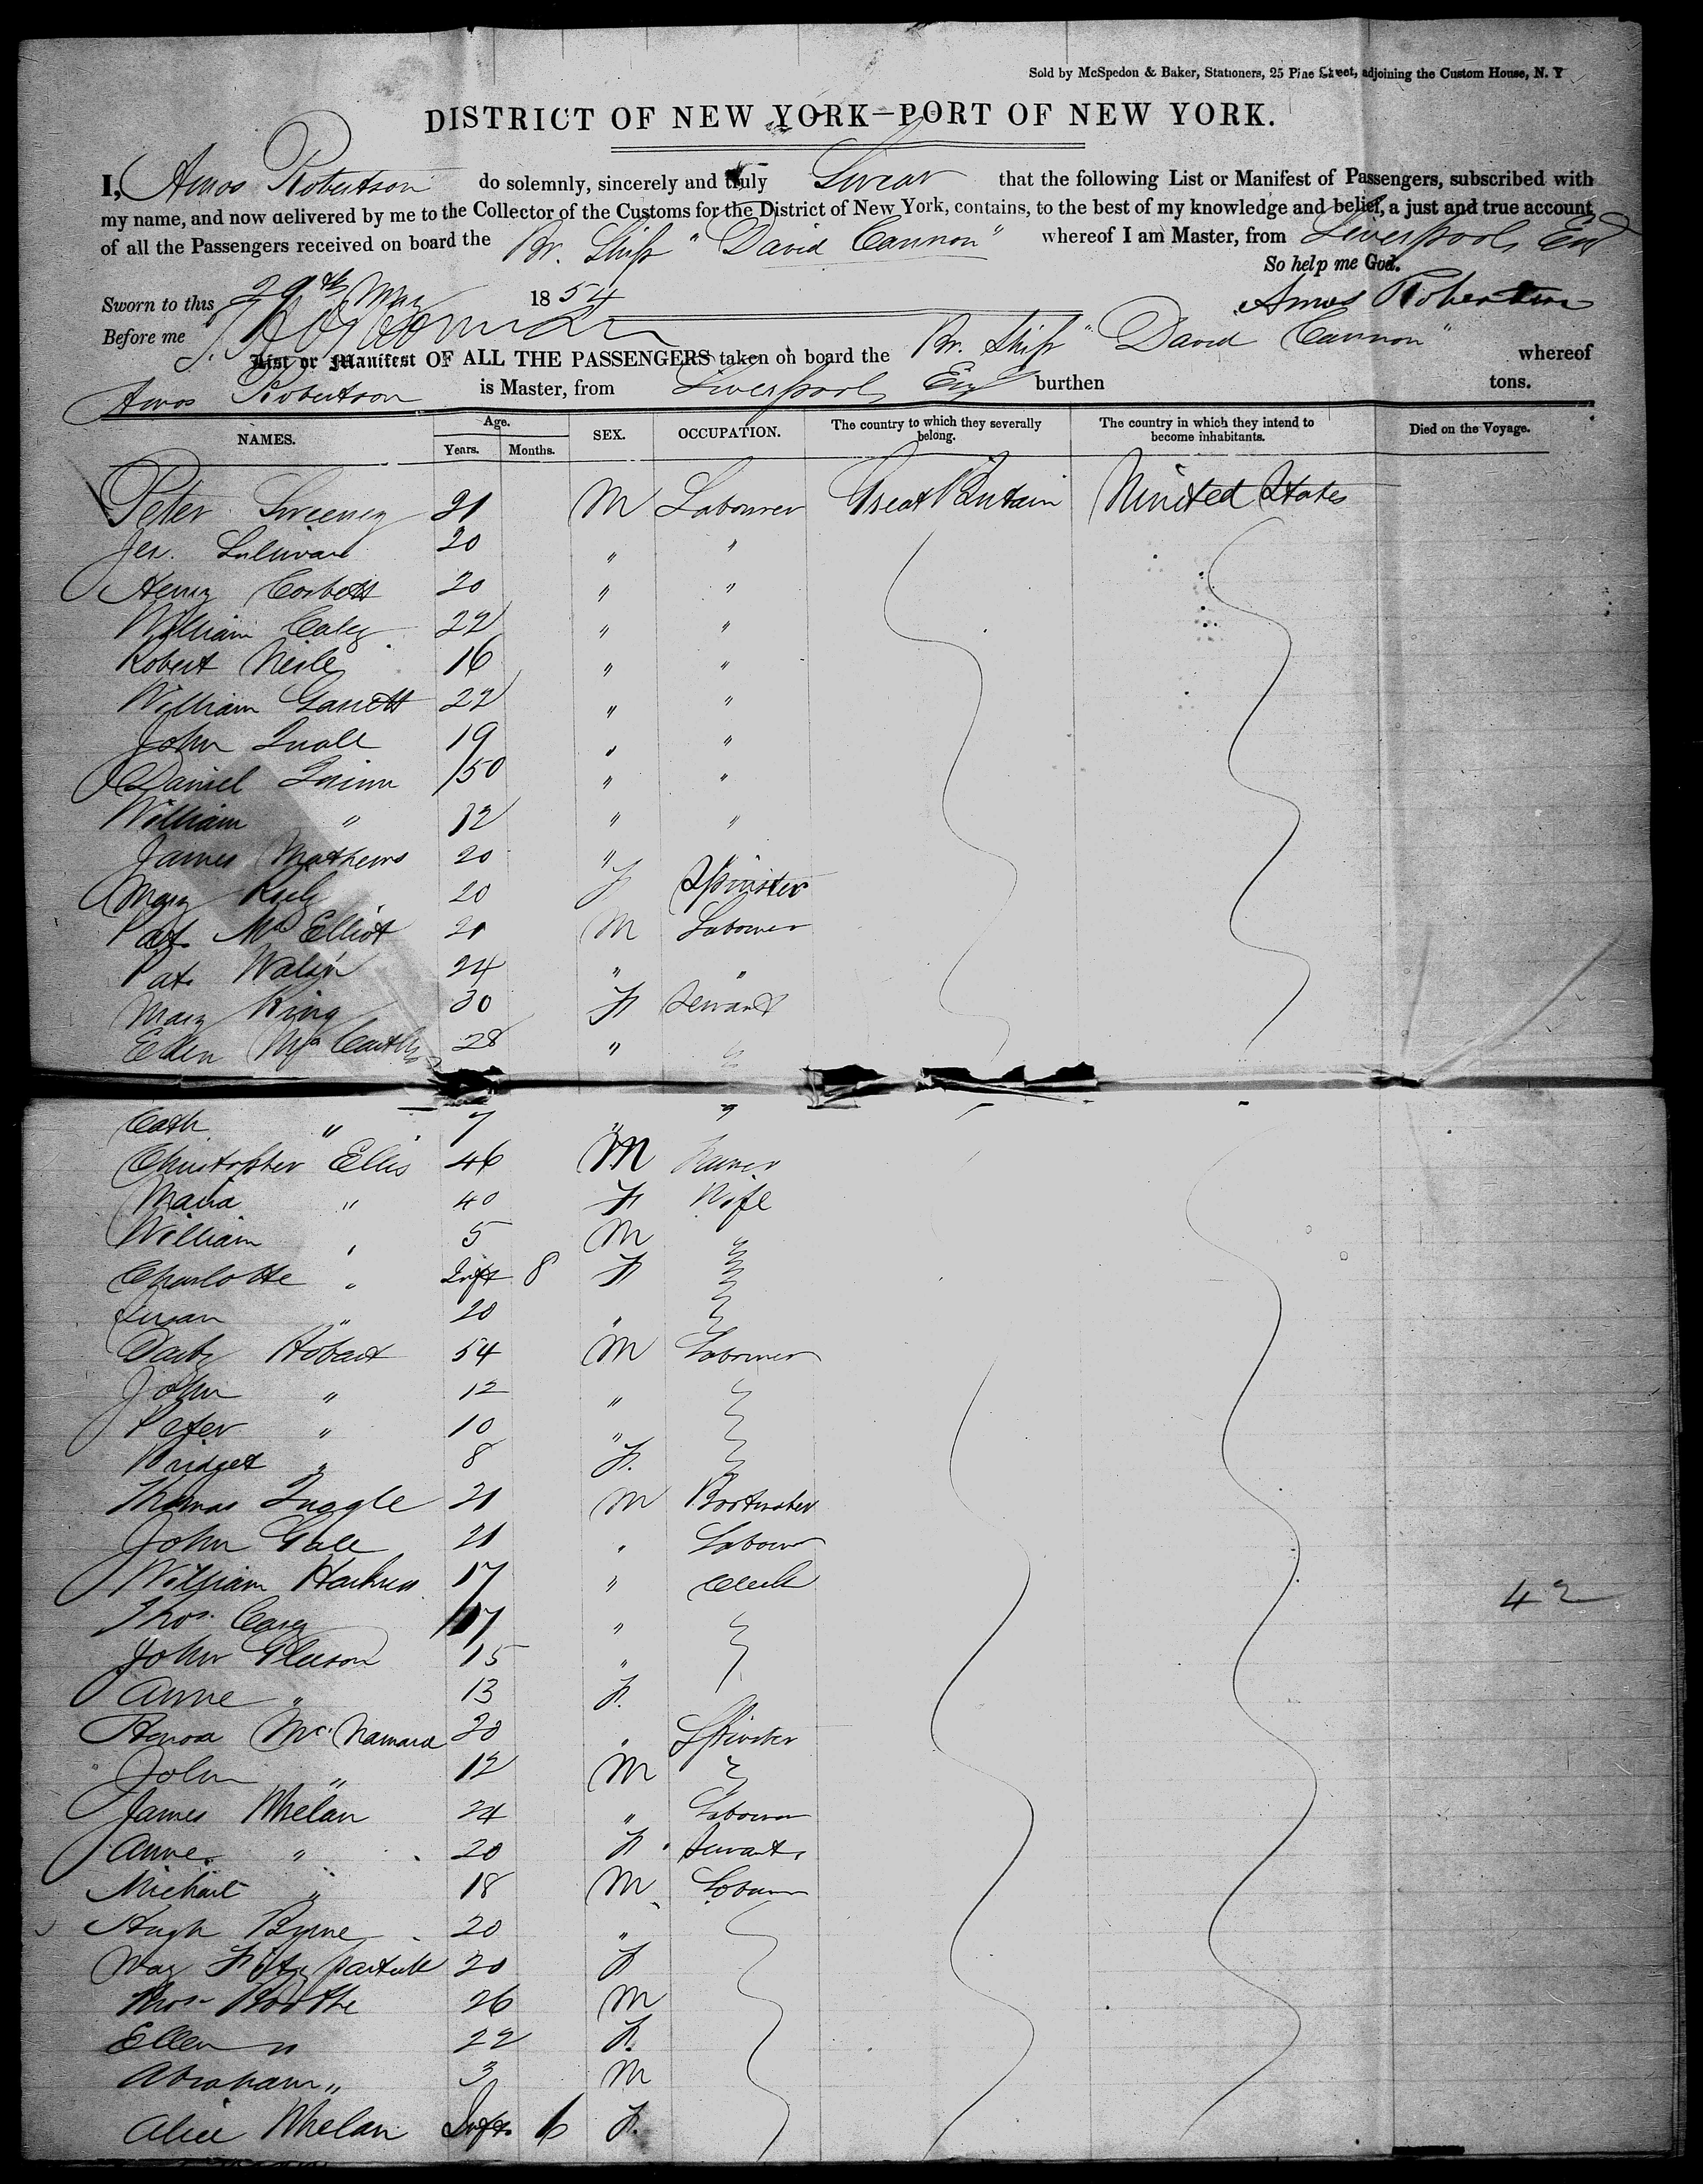 Sold by McSpedon & Baker, Stationers, 25 Pine Street, adjoining the Custom House, N. Y
DISTRICT OF NEW YORK—PORT OF NEW YORK.
I, Amos Robertson do solemnly, sincerely and truly Swear that the following List or Manifest of Passengers, subscribed with
my name, and now delivered by me to the Collector of the Customs for the District of New York, contains, to the best of my knowledge and belief, a just and true account
of all the Passengers received on board the Br. Ship "David Cannon" whereof I am Master, from Liverpool, Eng
So help me God.
Sworn to this 29th May 1854 Amos Robertson
Before me
List or Manifest OF ALL THE PASSENGERS taken on board the Br. Ship "David Cannon" whereof
Amos Robertson is Master, from Liverpool, Eng burthen tons.
NAMES. Age. Years. Months. SEX. OCCUPATION. The country to which they severally belong. The country in which they intend to become inhabitants. Died on the Voyage.
Peter Sweeney 21 M Labourer Great Britain United States
Jer. Sullivan 20 " "
Henry Corbett 20 " "
William Caley 22 " "
Robert Neile 16 " "
William Garrett 22 " "
John Quall 19 " "
Daniel Quinn 50 " "
William " 12 " "
James Mathews 20 "
Mary Kiely 20 F Spinster
Pat. McElliot 21 M Labourer
Pat. Walsh 24 " "
Mary King 30 F Servant
Ellen McCarthy 28 "
Cath " 7 " "
Christopher Ellis 46 M Farmer
Maria " 40 F Wife
William " 5 M
Charlotte " Inft 8 F
Susan " 20 "
Darby Hobart 54 M Labourer
John " 12 "
Peter " 10 "
Bridget " 8 F.
Thomas Quagle 21 M Bootmaker
John Gale 21 " Labour
William Harkness 17 " Clerk
Thos. Carey 17 "
John Gleeson 15 "
Anne " 13 F.
Honora McNamara 20 " Spinster
John " 12 M
James Whelan 24 " Labourer
Anne " 20 F Servant
Michael " 18 M Labour
Hugh Byrne 20 "
Mary Fitzpatrick 20 F
Thos. Boothe 26 M
Ellen " 22 F.
Abraham " 3 M
Alice Whelan Inft. 6 F.
42